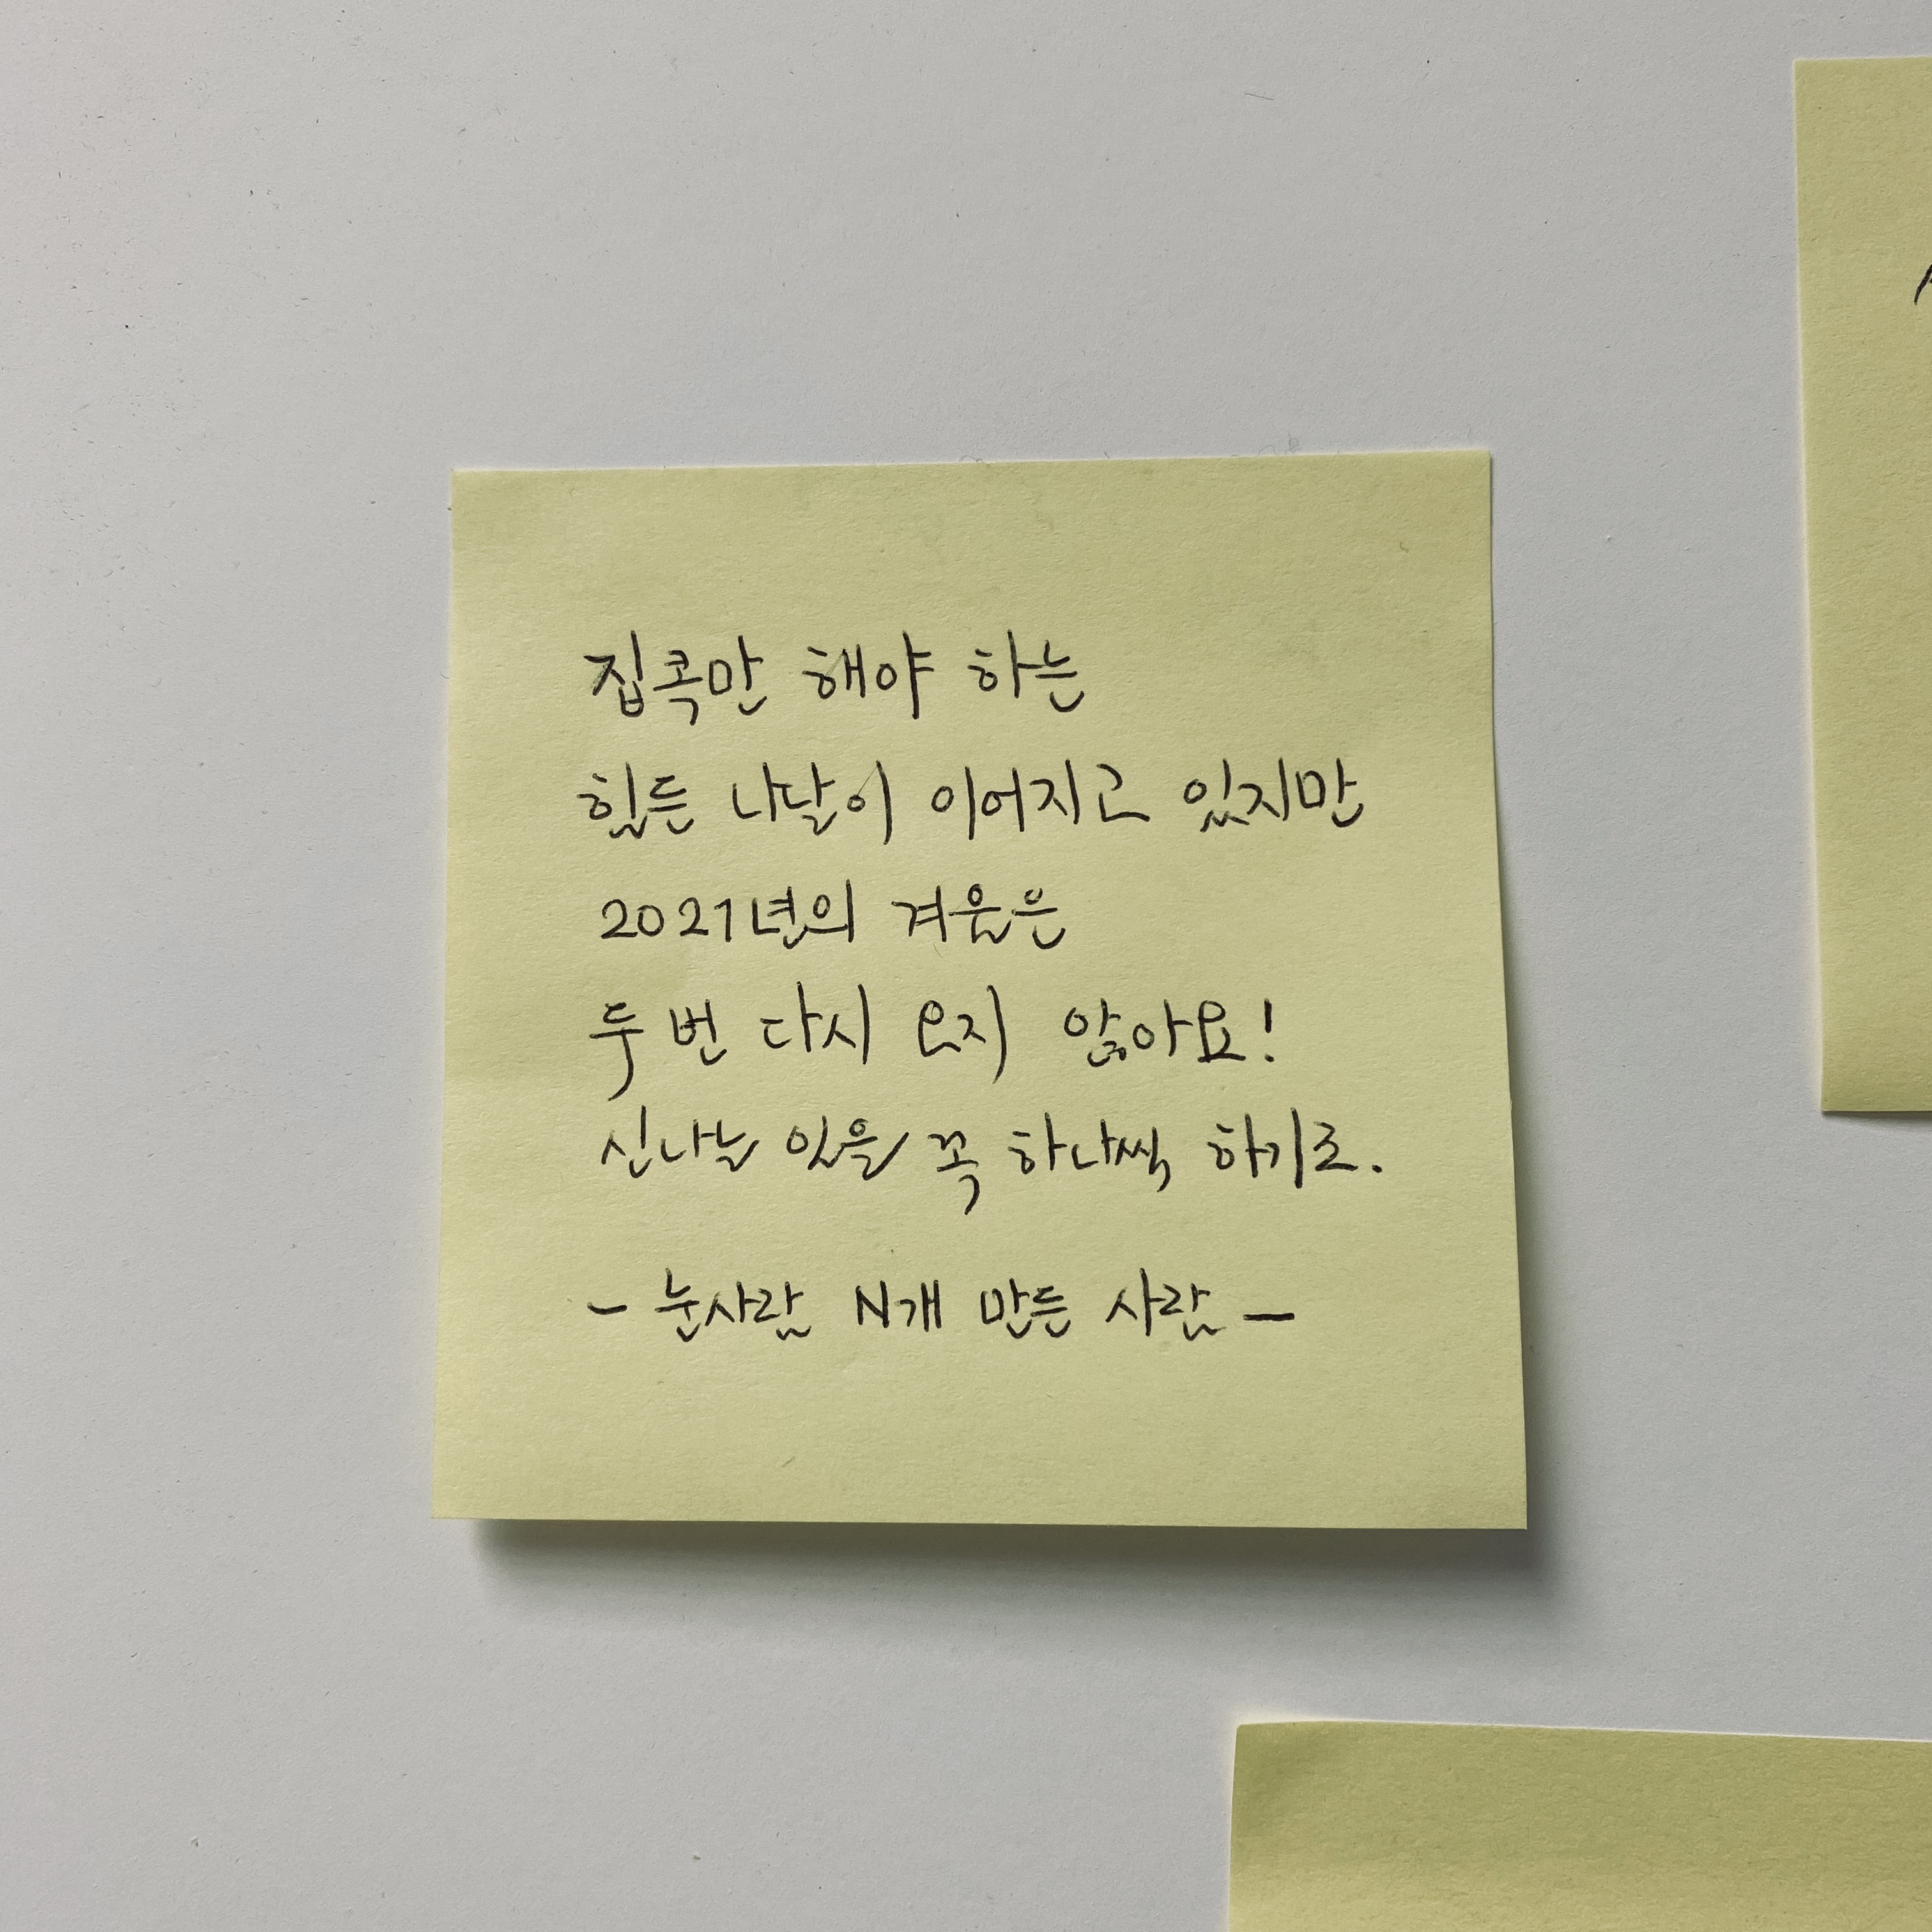 집콕만 해야 하는
힘든 나날이 이어지고 있지만
2021년의 겨울은
두 번 다시 오지 않아요!
신나는 일을 꼭 하나씩 하기로.
- 눈사람 N개 만든 사람 -